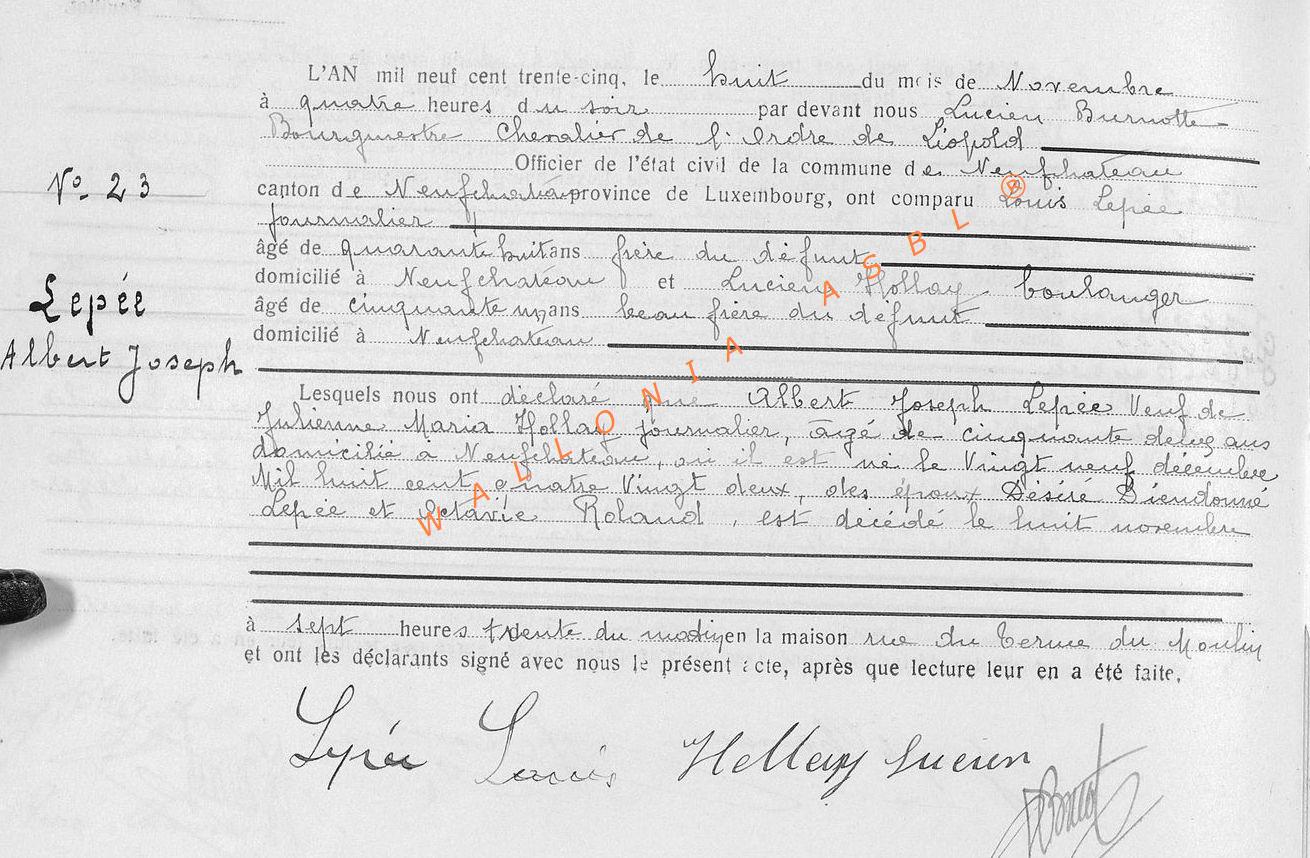 L'AN mil neuf cent trente-cinq, le huit du mois de Novembre
à quatre heures du soir par devant nous Lucien Burnotte
Bourgmestre Chevalier de l'Ordre de Léopold
Officier de l'état civil de la commune de Neufchateau
N° 23
canton de Neufchateau province de Luxembourg, ont comparu Louis Lepée
journalier
âgé de quarante huit ans frère du défunt
domicilié à Neufchateau et Lucien Hollay boulanger
Lepée
âgé de cinquante un ans beau frère du défunt
domicilié à Neufchateau
Albert Joseph
Lesquels nous ont déclaré que Albert Joseph Lepée Veuf de
Julienne Maria Hollay journalier, âgé de cinquante deux ans
domicilié à Neufchateau, où il est né le Vingt neuf décembre
Mil huit cent quatre Vingt deux, des époux Désiré Dieudonné
Lepée et Octavie Roland, est décédé le huit novembre
à sept heures trente du matin en la maison rue du Terme du Moulin
et ont les déclarants signé avec nous le présent acte, après que lecture leur en a été faite.
Lepée Louis Hollay Lucien
WALLONIA ASBL ®